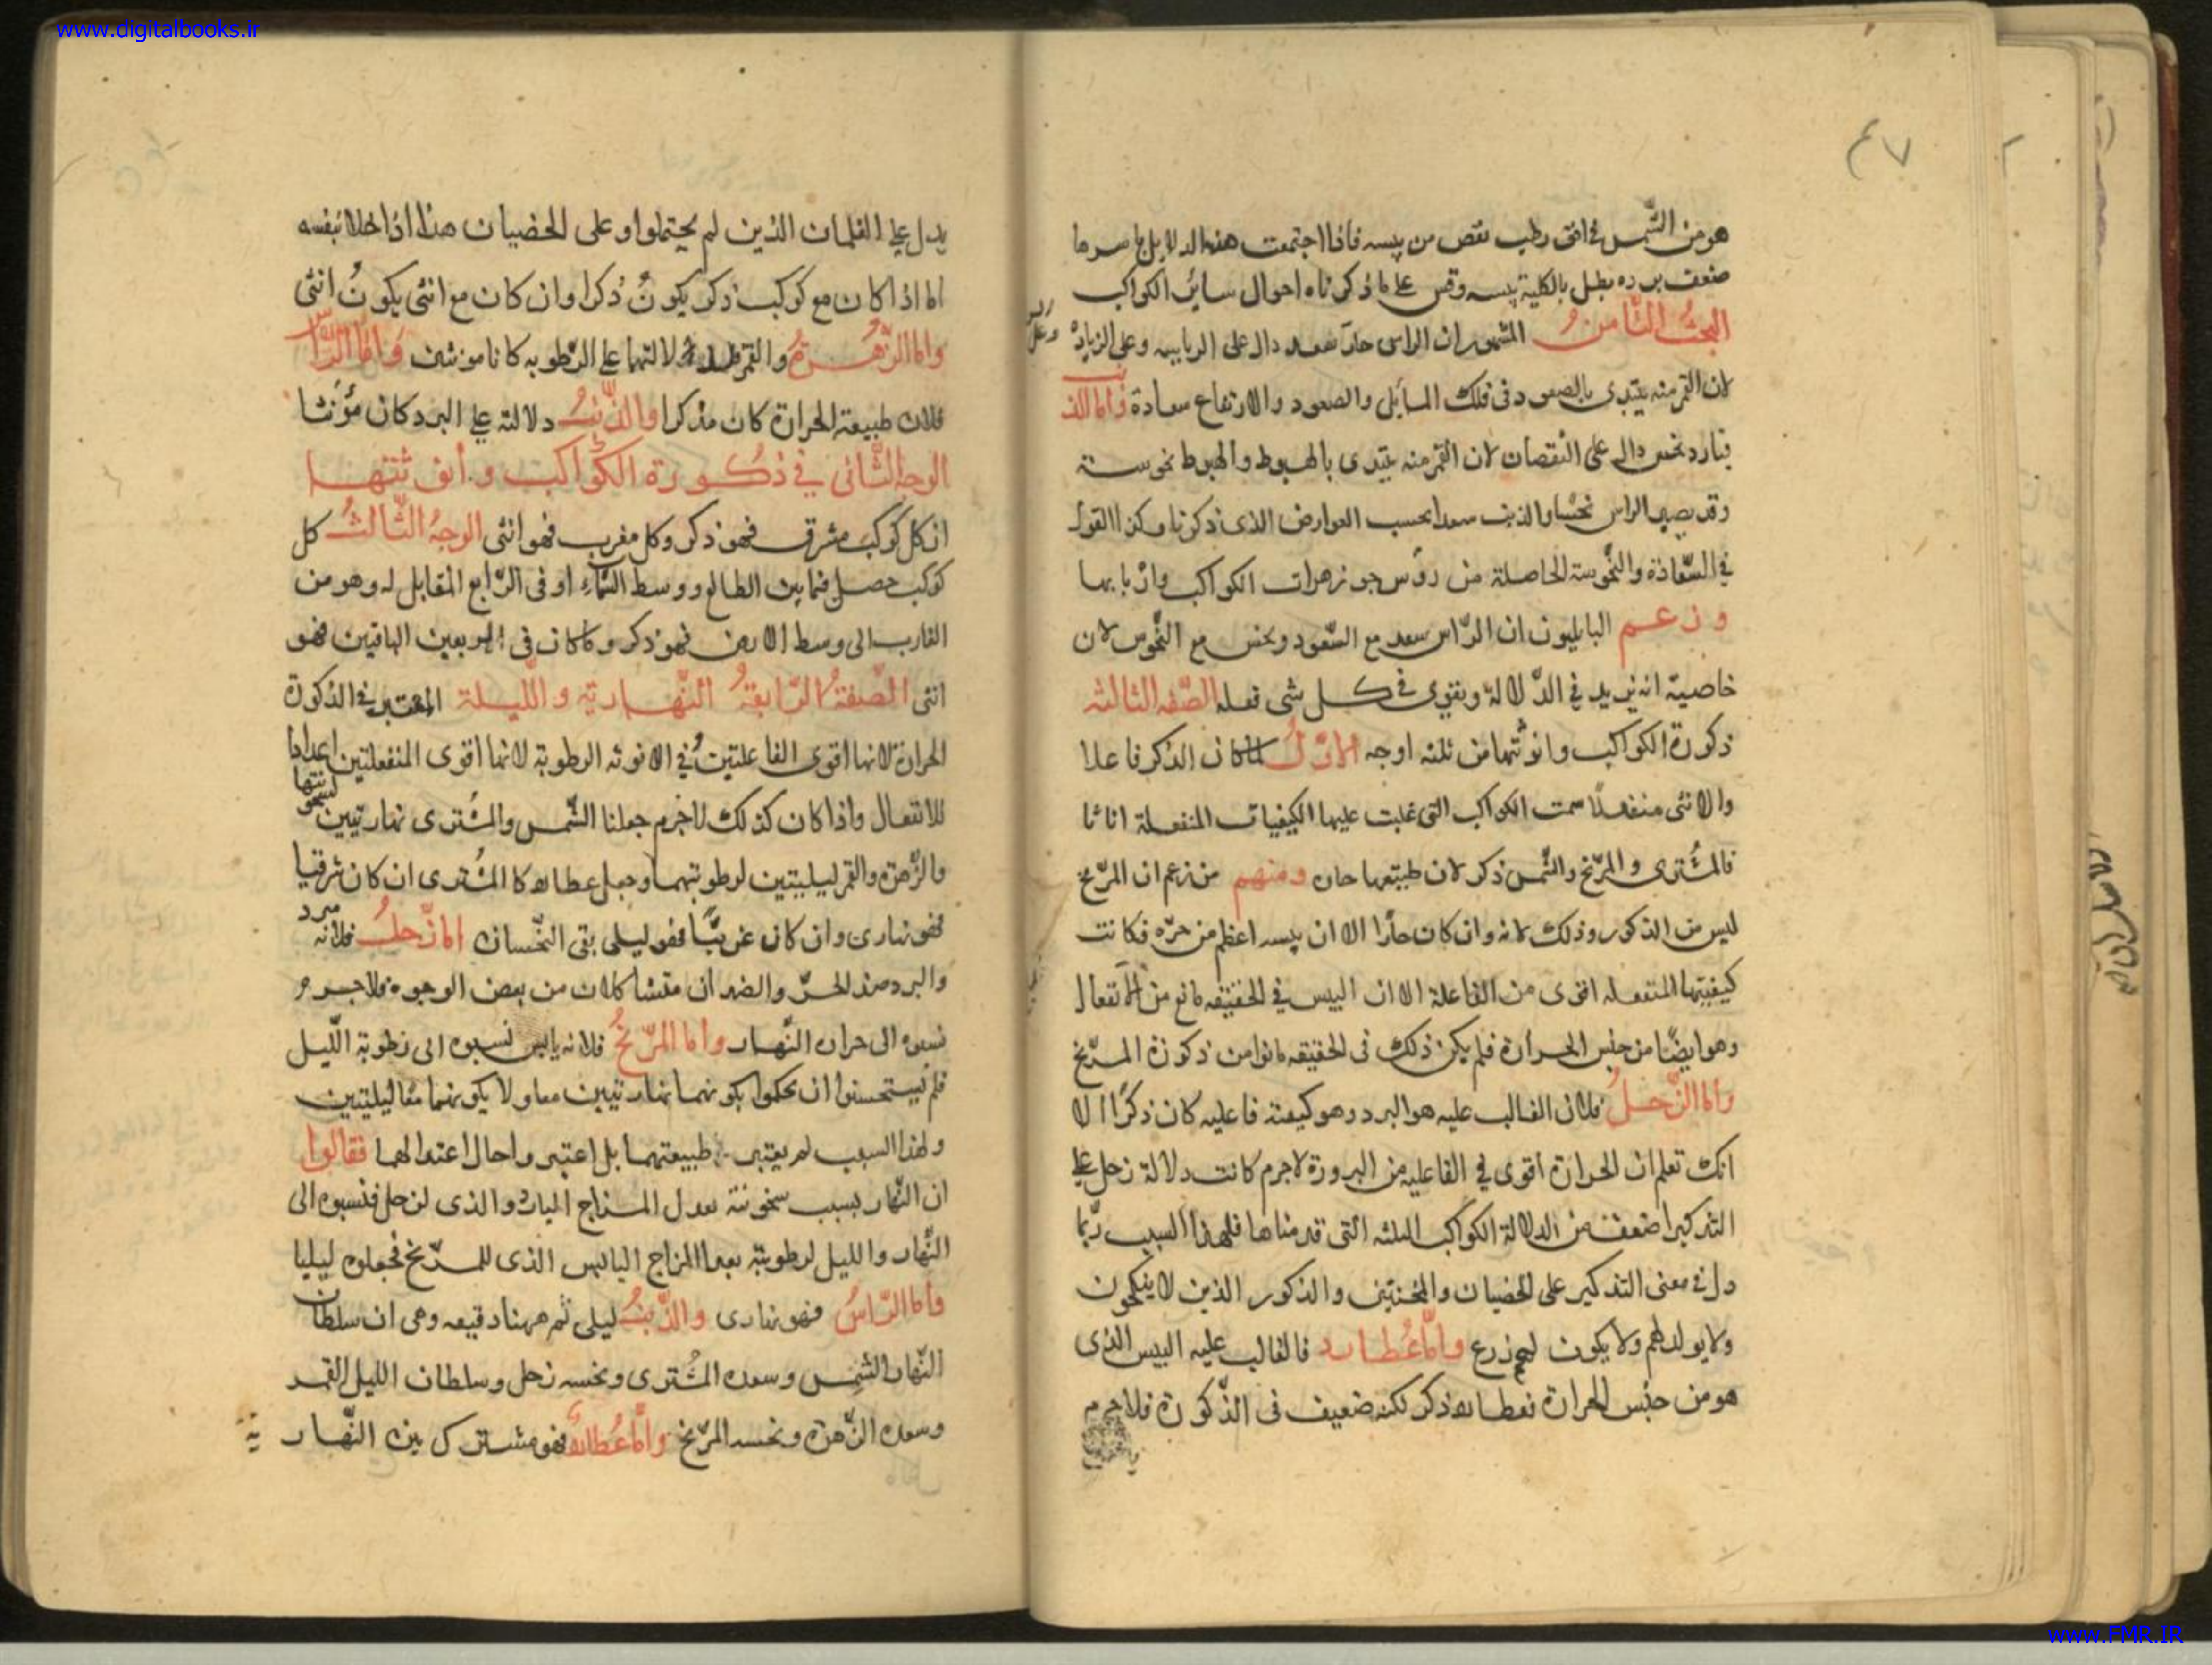 www.digitalbooks.ir
٤٧
هو من الشمس في افق رطب نقص من يبسه فاذا اجتمعت هذه الدلايل باسرها
ضعف برده بطل بالكلية يبسه وقس على ما ذكرناه احوال سائر الكواكب
البحث الثامن المشهور ان الراس حار سعد دال على الرياسه وعلى الزيادة
لان القمر منه يبتدى بالصعود فى فلك المائل والصعود والارتفاع سعادة واما الذنب
فبارد نحس دال على النقصان لان القمر منه يبتدى بالهبوط والهبوط نحوسة
وقد يصير الراس نحسا والذنب سعدا بحسب العوارض الذى ذكرنا وكذا القول
في السعادة والنحوسة الحاصلة من رؤس جوزهرات الكواكب واذنابها
وزعم البابليون ان الراس سعد مع السعود ونحس مع النحوس لان
خاصية انه يزيد في الدلالة ويقوى في كل شى فعله الصفه الثالثه
ذكورة الكواكب وانوثتها من ثلثه اوجه الاول لما كان الذكر فاعلا
والانثى منفعلا سمت الكواكب التى غلبت عليها الكيفيات المنفعلة اناثا
فالمشترى والمريخ والشمس ذكر لان طبيعتها حاره ومنهم من زعم ان المريخ
ليس من الذكور وذلك لانه وان كان حارا الا ان يبسه اعظم من حره فكانت
كيفيتها المنفعله اقوى من الفاعلة الا ان اليبس في الحقيقه مانع من الانفعال
وهو ايضا من جنس الحرارة فلم يكن ذلك فى الحقيقه مانعا من ذكورة المريخ
واما الزحل فلان الغالب عليه هو البرد وهو كيفية فاعليه كان ذكرا الا
انك تعلم ان الحرارة اقوى في الفاعليه من البرودة لاجرم كانت دلالة زحل على
التذكير اضعف من الدلالة الكواكب الثلثه التى قدمناها فلهذا السبب ربما
دل في معنى التذكير على الخصيان والمخنثين والذكور الذين لا ينكحون
ولا يولد لهم ولا يكون لهم زرع واما عطارد فالغالب عليه اليبس الذى
هو من جنس الحرارة فعطارد ذكر لكنه ضعيف فى الذكورة فلاجرم
يدل على الغلمان الذين لم يحتلموا وعلى الخصيان هذا اذا خلا بنفسه
اما اذا كان مع كوكب ذكر يكون ذكرا وان كان مع انثى يكون انثى
واما الزهرة والقمر فلدلالتهما على الرطوبه كانا مونثين واما الراس
فلان طبيعة الحرارة كان مذكرا والذنب دلالته على البرد كان مؤنثا
الوجه الثانى في ذكورة الكواكب وانوثتها
ان كل كوكب مشرق فهو ذكر وكل مغرب فهو انثى الوجه الثالث كل
كوكب حصل فيما بين الطالع ووسط السماء او فى الرابع المقابل له وهو من
الغارب الى وسط الارض فهو ذكر وما كان فى الربعين الباقين فهو
انثى الصفة الرابعة النهارية والليلة المعتبر في الذكورة
الحرارة لانها اقوى الفاعلتين في الانوثه الرطوبة لانها اقوى المنفعلتين اعدادا
للانفعال واذا كان كذلك لاجرم جعلنا الشمس والمشترى نهاريتين لسخونتها
والزهرة والقمر ليليتين لرطوبتهما وجعل عطارد كا المشترى ان كان شرقيا
فهو نهارى وان كان غربيا فهو ليلى بقى النحسان اما زحل فلانه مبرد
والبرد ضد الحر والضدان متشاكلان من بعض الوجوه فلاجرم
نسبوه الى حراره النهار واما المريخ فلانه يابس نسبوه الى رطوبة الليل
فلم يستحسنوا ان يحكموا بكونهما نهاريتين معا ولا يكونهما معا ليليتين
ولهذا السبب لم يعتبر طبيعتهما بل اعتبروا حال اعتدالهما فقالوا
ان النهار بسبب سخونته يعدل المزاج البارد الذى لزحل فنسبوه الى
النهار والليل لرطوبته يعدل المزاج اليابس الذى للمريخ فجعلوه ليليا
واما الراس فهو نهارى والذنب ليلى ثم ههنا دقيقه وهى ان سلطان
النهار الشمس وسعده المشترى ونحسه زحل وسلطان الليل القمر
وسعده الزهرة ونحسه المريخ واما عطارد فهو مشترك بين النهار
www.FMR.IR